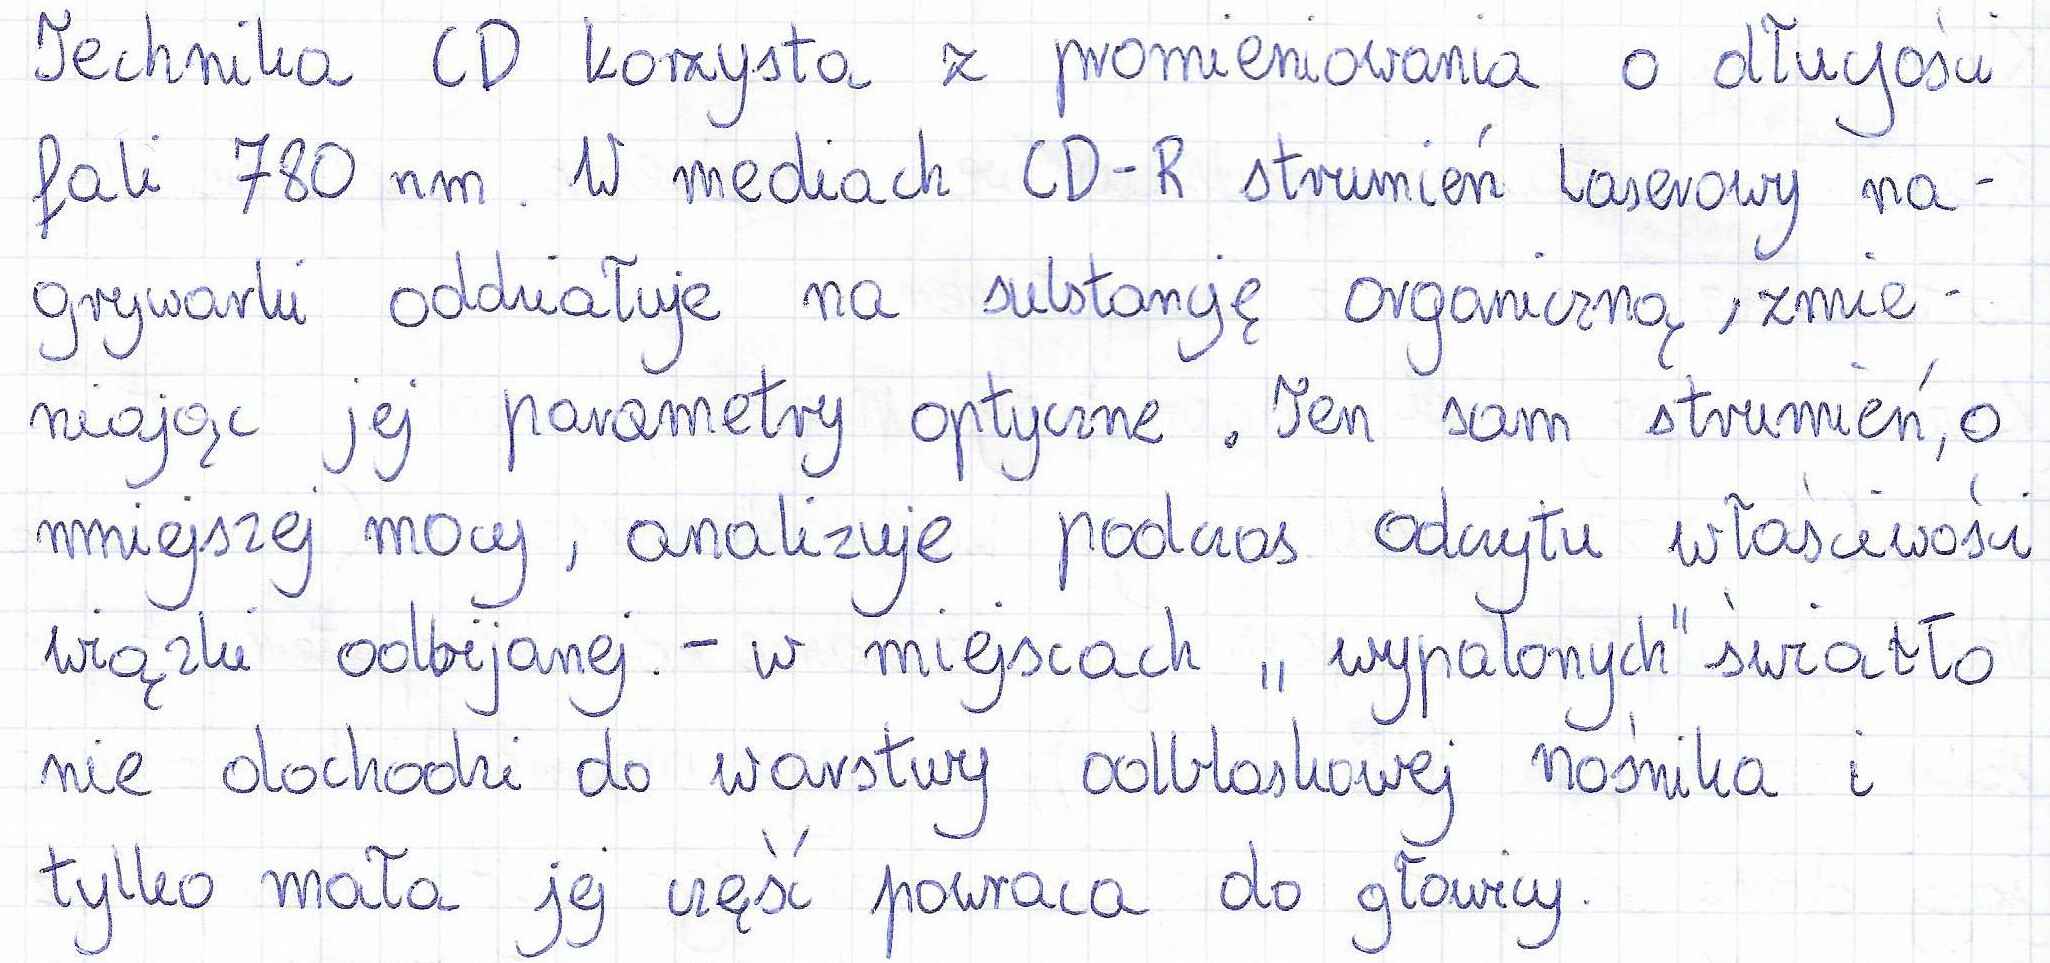 Technika CD korzysta z promieniowania o długości
fali 780 nm. W mediach CD-R strumień laserowy na-
grywarki oddziałuje na substancję organiczną, zmie-
niając jej parametry optyczne. Ten sam strumień, o
mniejszej mocy, analizuje podczas odczytu właściwości
wiązki odbijanej. - w miejscach „wypalonych" światło
nie dochodzi do warstwy odblaskowej nośnika i
tylko mała jej część powraca do głowicy.